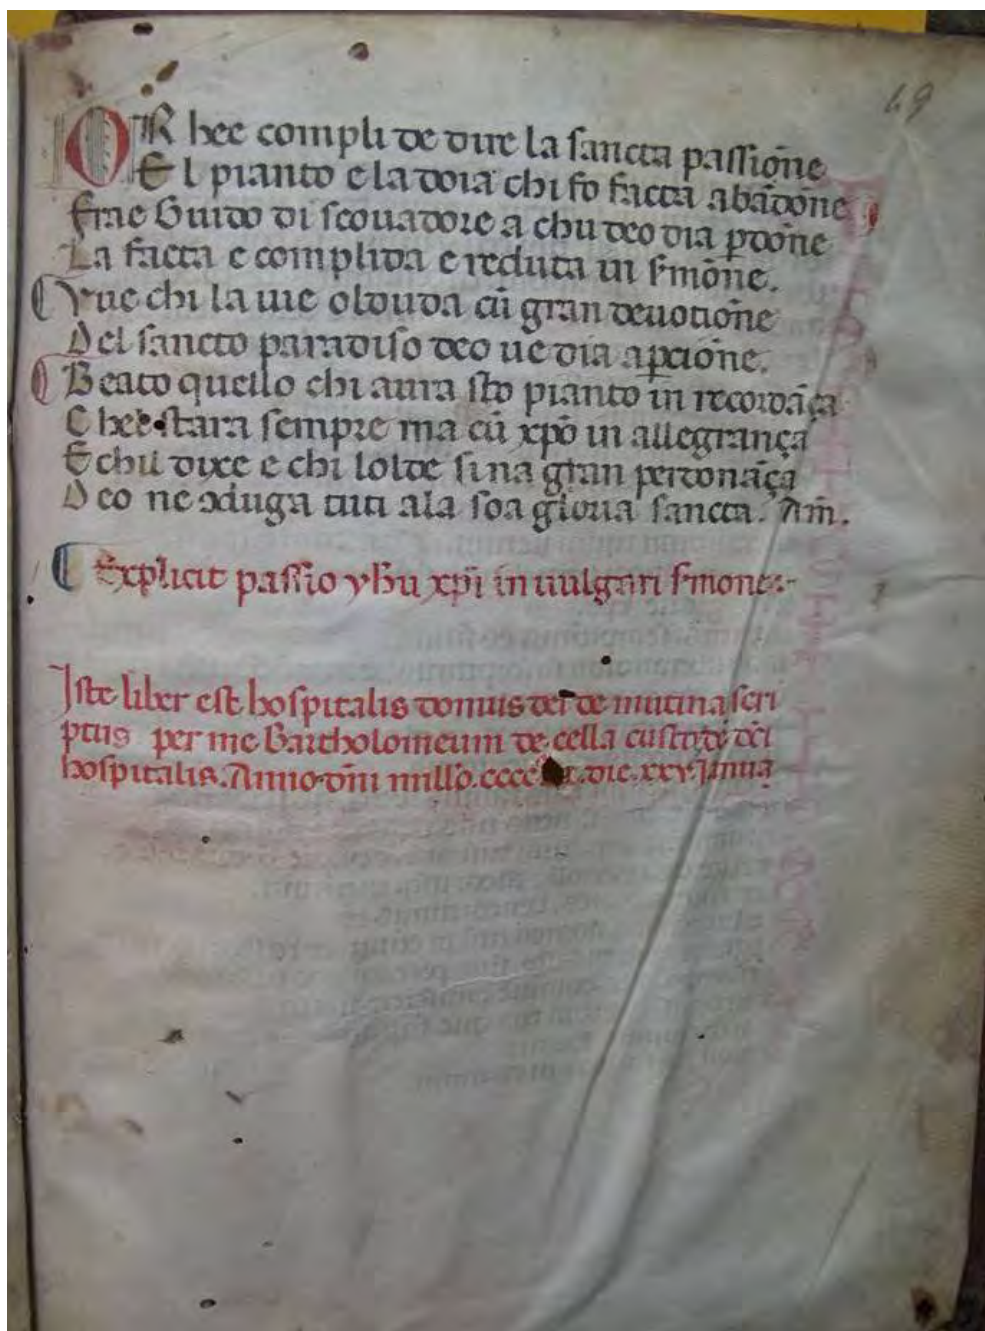 49
OR hee compli de dire la sancta passiōne
El pianto e la doia chi fo facta abādōne
Frae Guido di scouadore a chu deo dia pdōne
La facta e complida e reduta in s̄mōne.
Vue chi la uie olduda cū gran deuotiōne
Del sancto paradiso deo ue dia apciōne.
Beato quello chi aura sto pianto in recordāça
Chel stara sempre ma cū xpō in allegrança
E chil dixe e chi lolde sina gran perdonāça
Deo ne ↄduga tuti ala soa gloria sancta. Am̄.
Explicit passio yhu xpi in uulgari s̄mone
Iste liber est hospitalis domus dei de mutina scri
ptus per me Bartholomeum de cella custode dc̄i
hospitalis. Anno dn̄i millo. die. xxv. Januaȓ